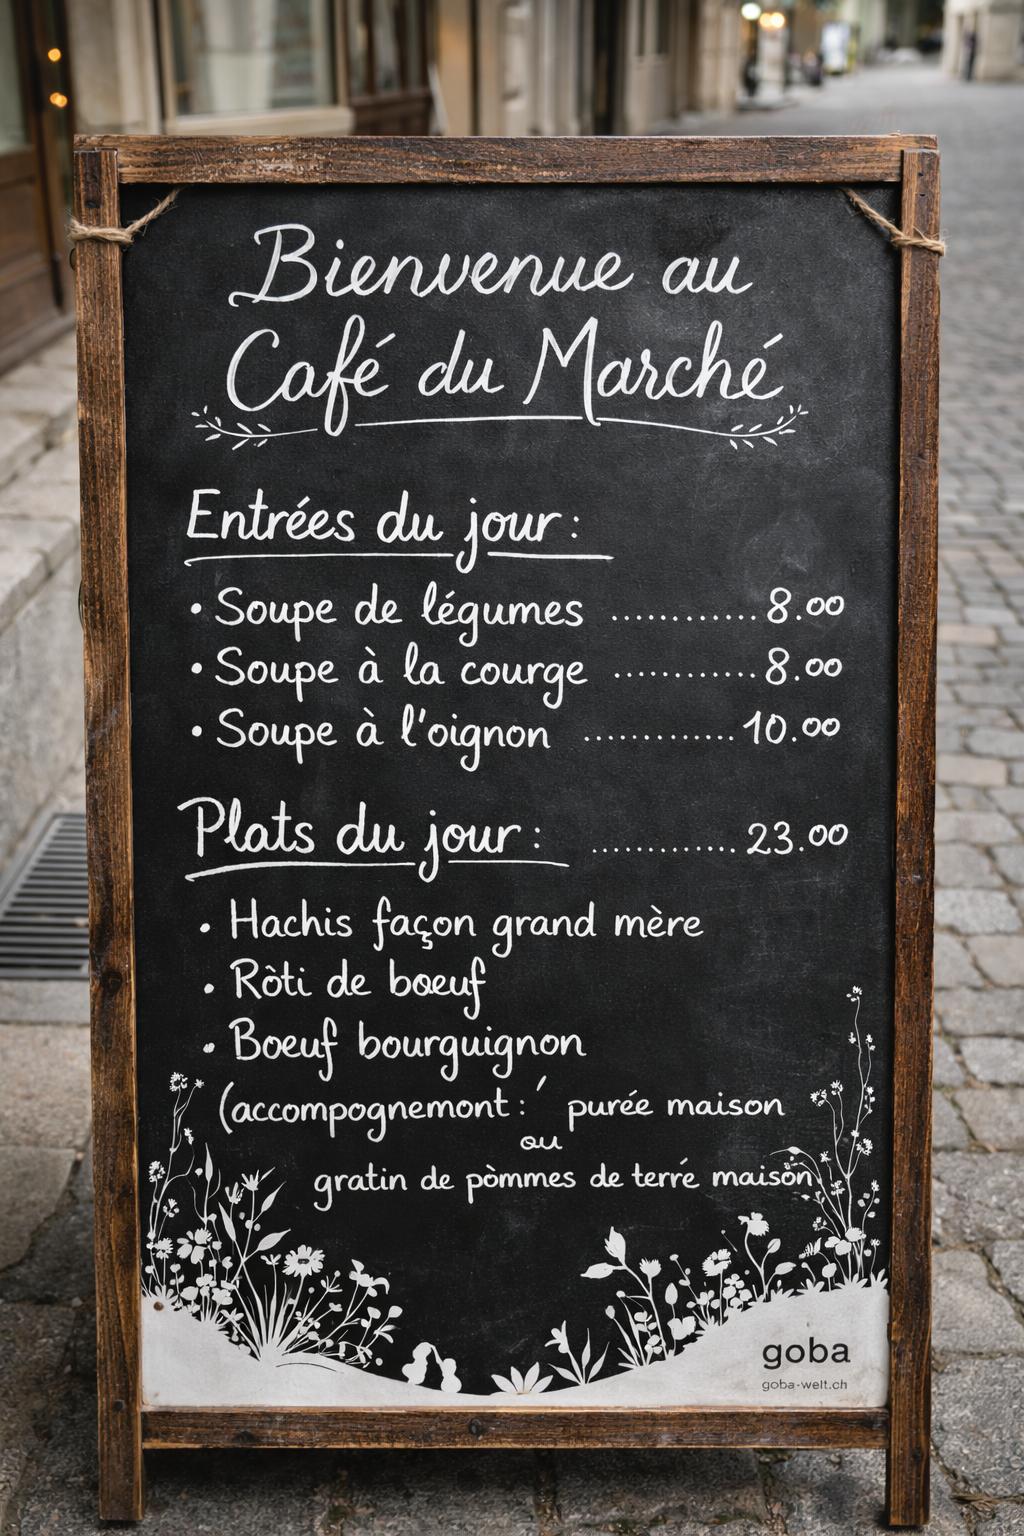 Bienvenue au
Café du Marché
Entrées du jour :
• Soupe de légumes ............ 8.00
• Soupe à la courge ............ 8.00
• Soupe à l'oignon ............ 10.00
Plats du jour : ............ 23.00
• Hachis façon grand mère
• Ròti de bœuf
• Boeuf bourguignon
(accompognemont : purée maison
ou
gratin de pòmmes de terré maisón
goba
goba-welt.ch